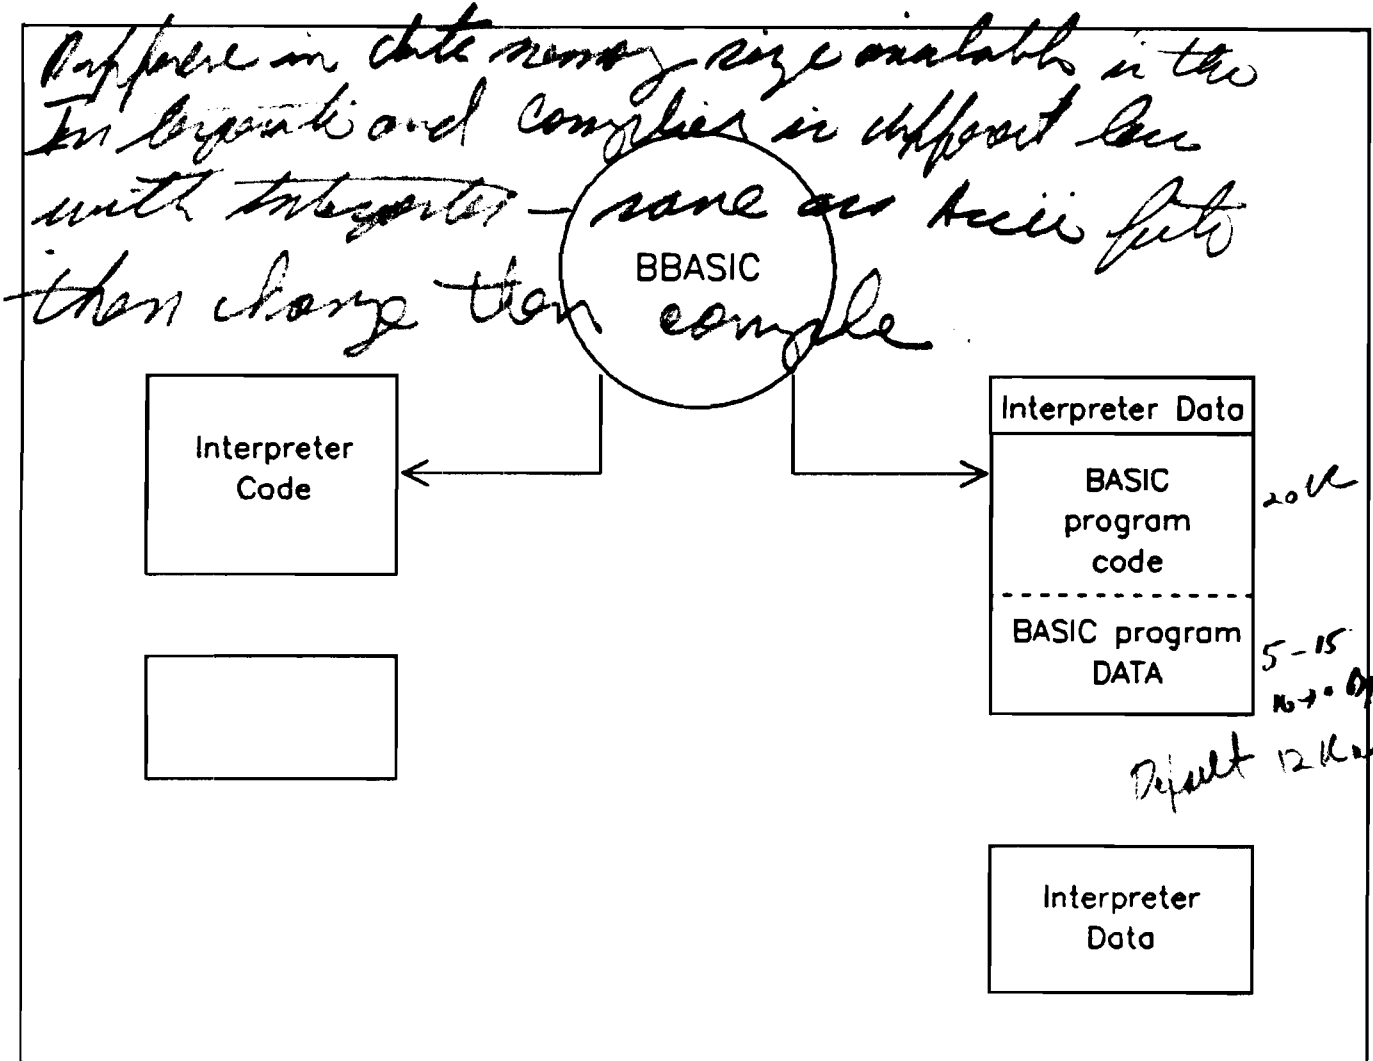 in data memory size available in the
and compiler is different
with Interpreter - save as Ascii
then change then compile
BBASIC
Interpreter
Code
Interpreter Data
BASIC
program
code
20K
BASIC program
DATA
5-15
Default 12K
Interpreter
Data